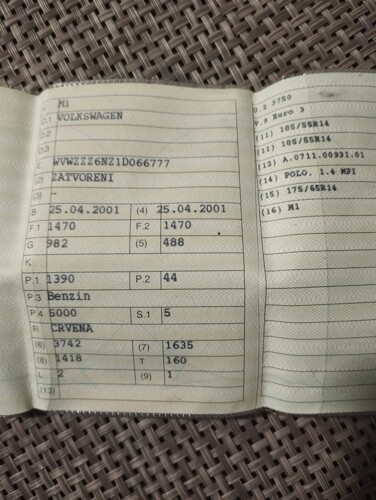 J M1
D.1 VOLKSWAGEN
D.2
D.3
E WVWZZZ6NZ1D066777
(2) ZATVORENI
(3) –
B 25.04.2001 (4) 25.04.2001
F.1 1470 F.2 1470
G 982 (5) 488
K
P.1 1390 P.2 44
P.3 Benzin
P.4 5000 S.1 5
R CRVENA
(6) 3742 (7) 1635
(8) 1418 T 160
L 2 (9) 1
(13)
U.2 3750
V.9 Euro 3
(11) 185/55R14
(11) 185/55R14
(13) A.0711.00931.01
(14) POLO. 1.4 MPI
(15) 175/65R14
(16) M1